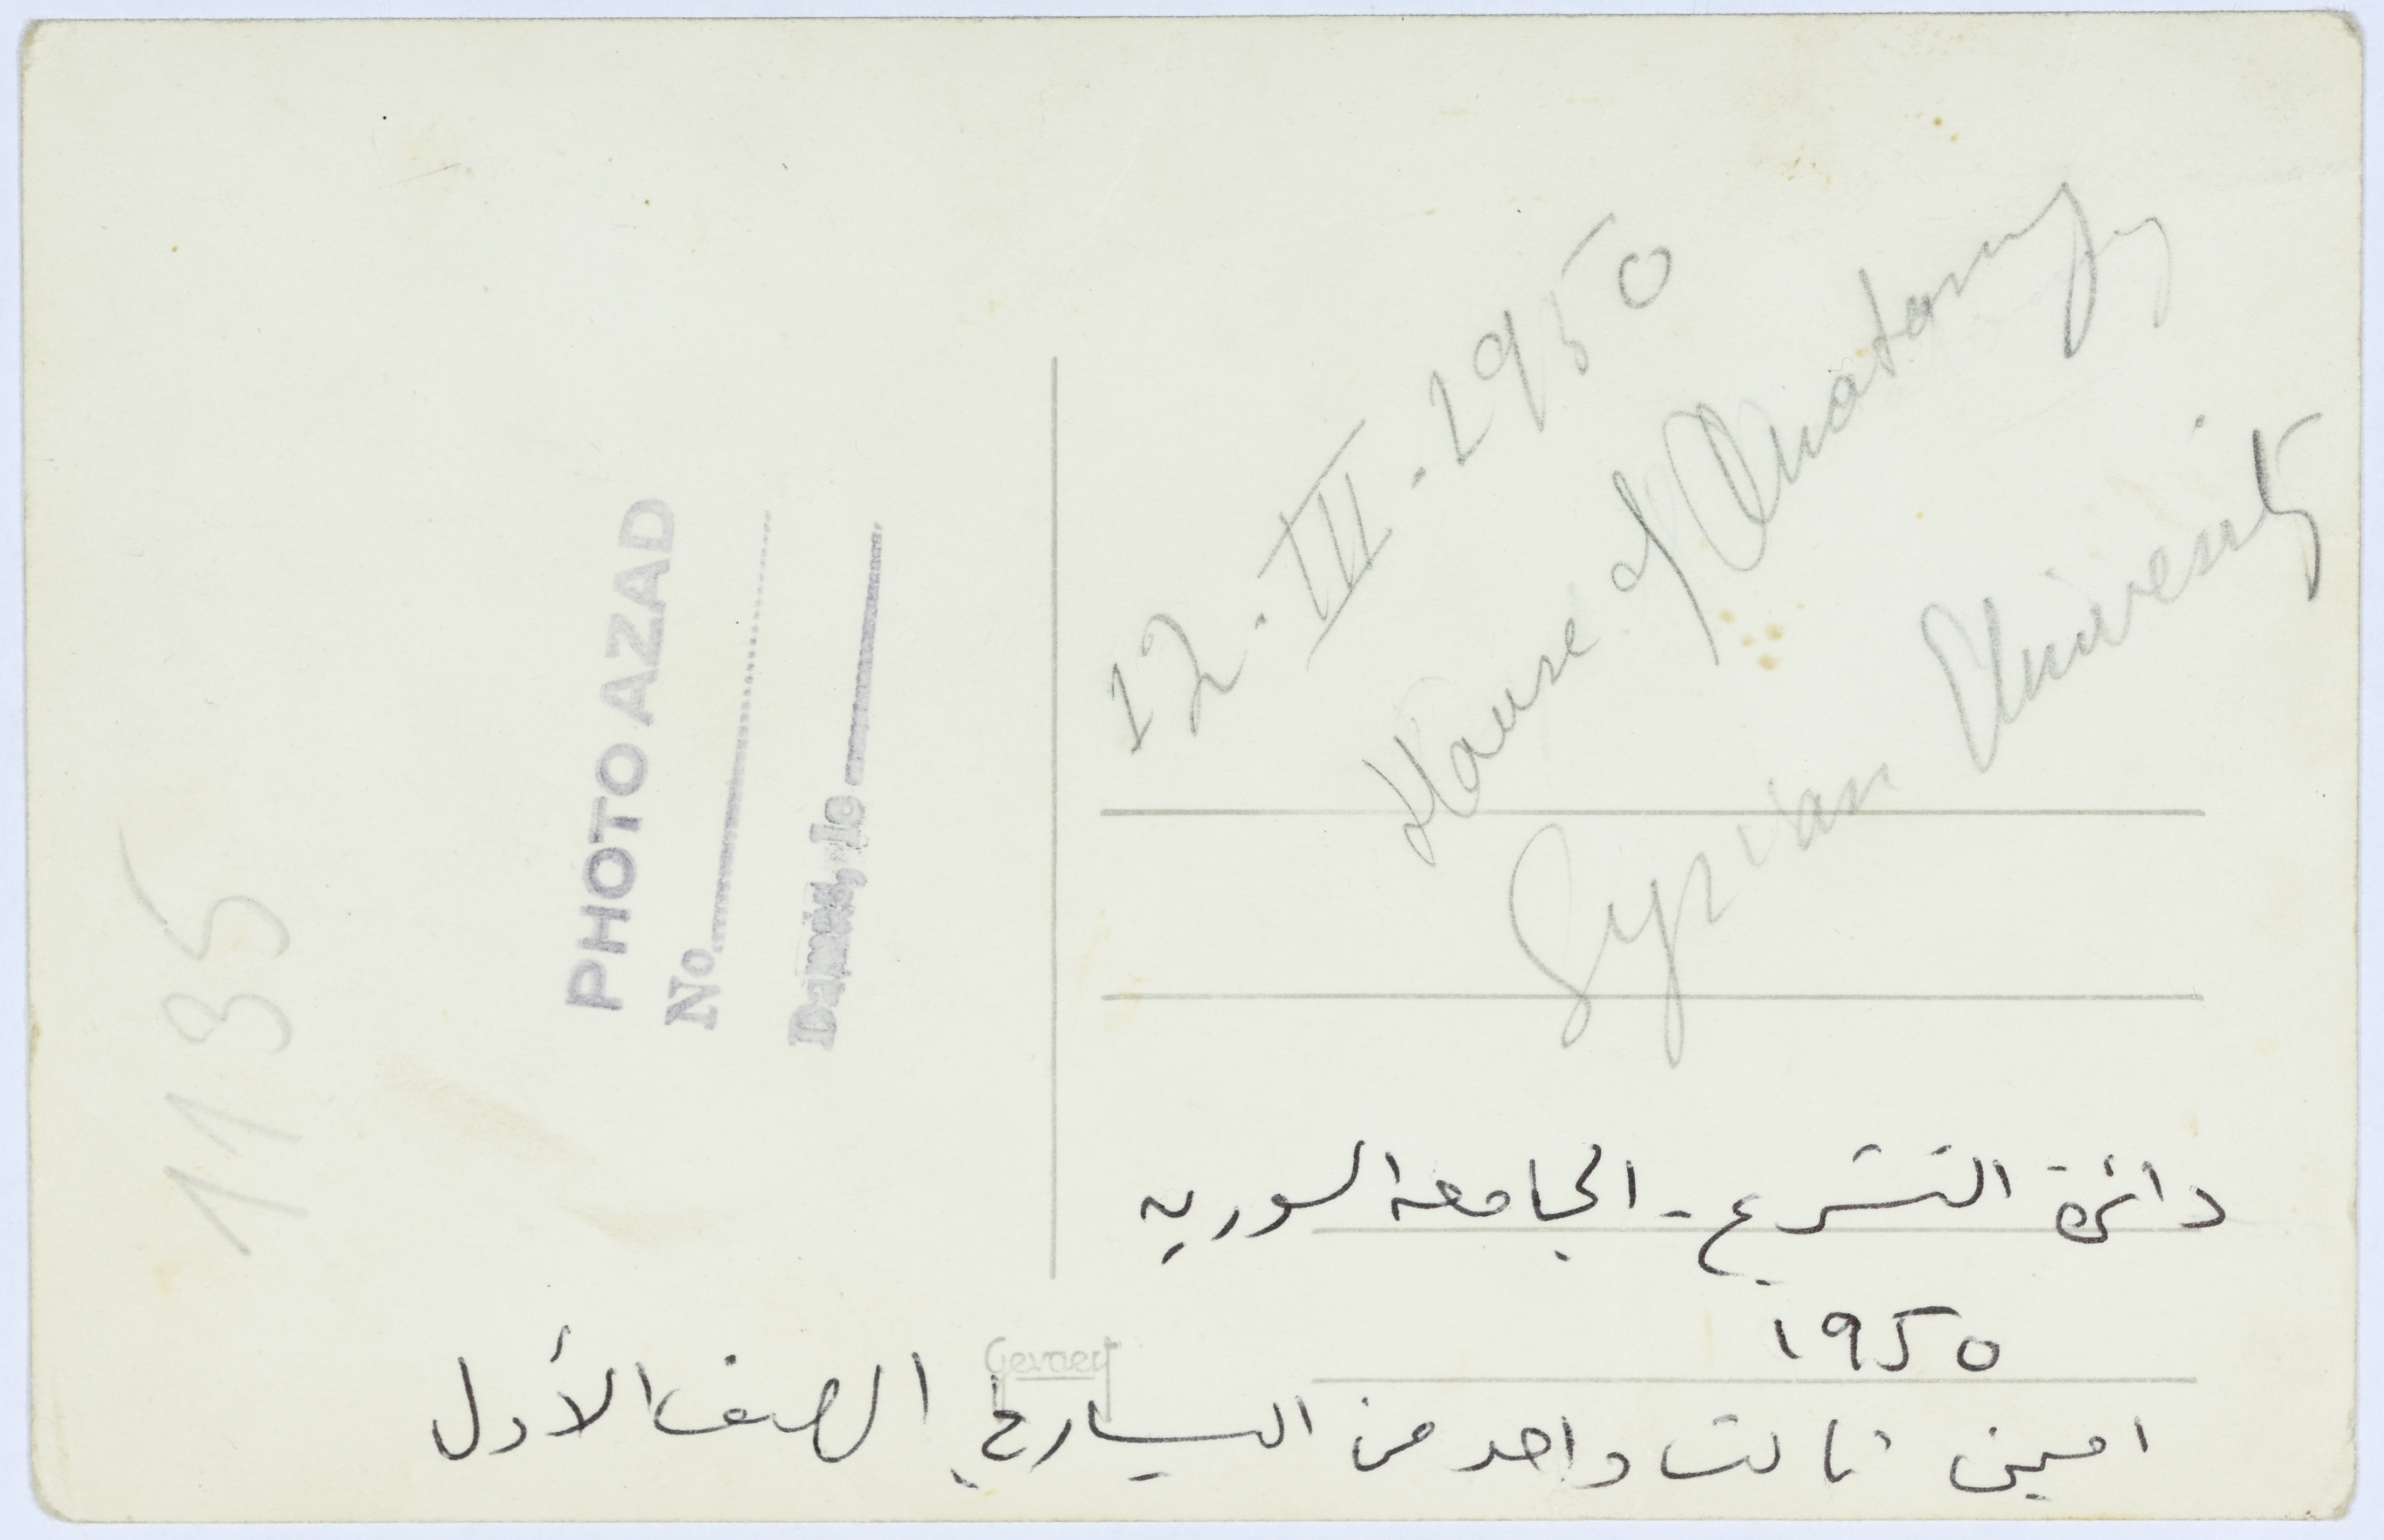 1135
PHOTO AZAD
No
Damas, le
12. III. 1950
House of Anatomy
Syrian University
دائرة التشريح - الجامعه السوريه
١٩٥٠
Gevaert
امين ثالث واحد من اليسار في الصف الأول